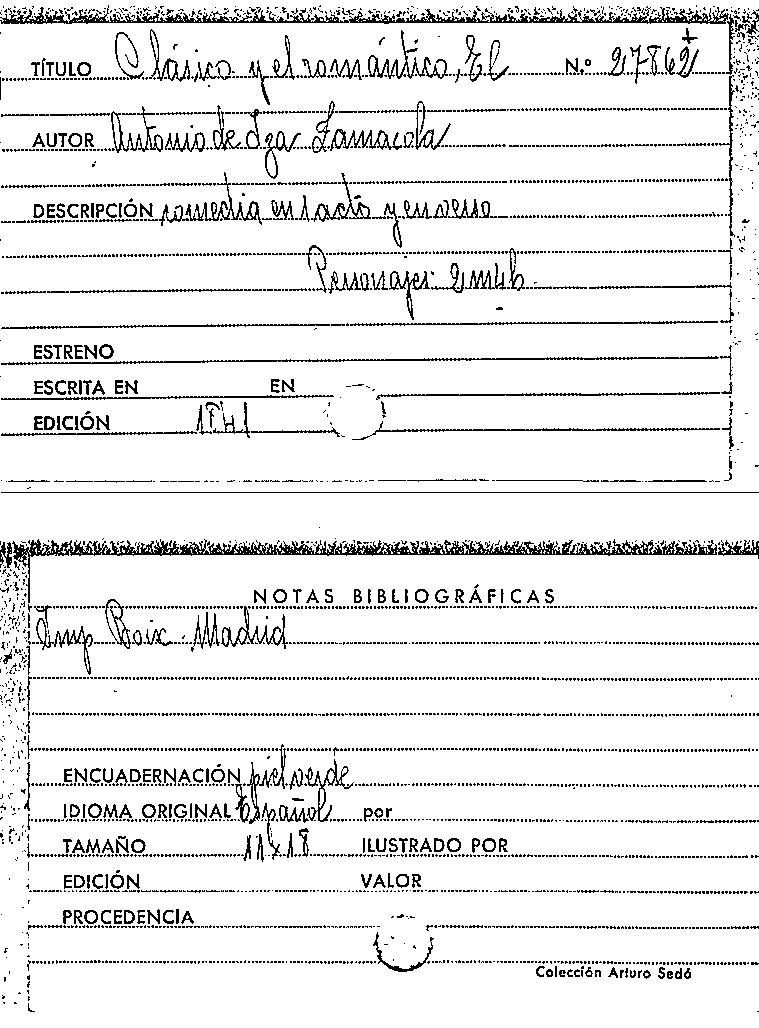 TÍTULO Clásico y el romántico, El N.º 27862 +
AUTOR Antonio de Iza Zamacola
DESCRIPCIÓN comedia en 1 acto y en verso
Personajes: 2 m 4 h.
ESTRENO
ESCRITA EN EN
EDICIÓN 1841
NOTAS BIBLIOGRÁFICAS
Imp Boix. Madrid
ENCUADERNACIÓN piel verde
IDIOMA ORIGINAL Español por
TAMAÑO 11x18 ILUSTRADO POR
EDICIÓN VALOR
PROCEDENCIA
Colección Arturo Sedó